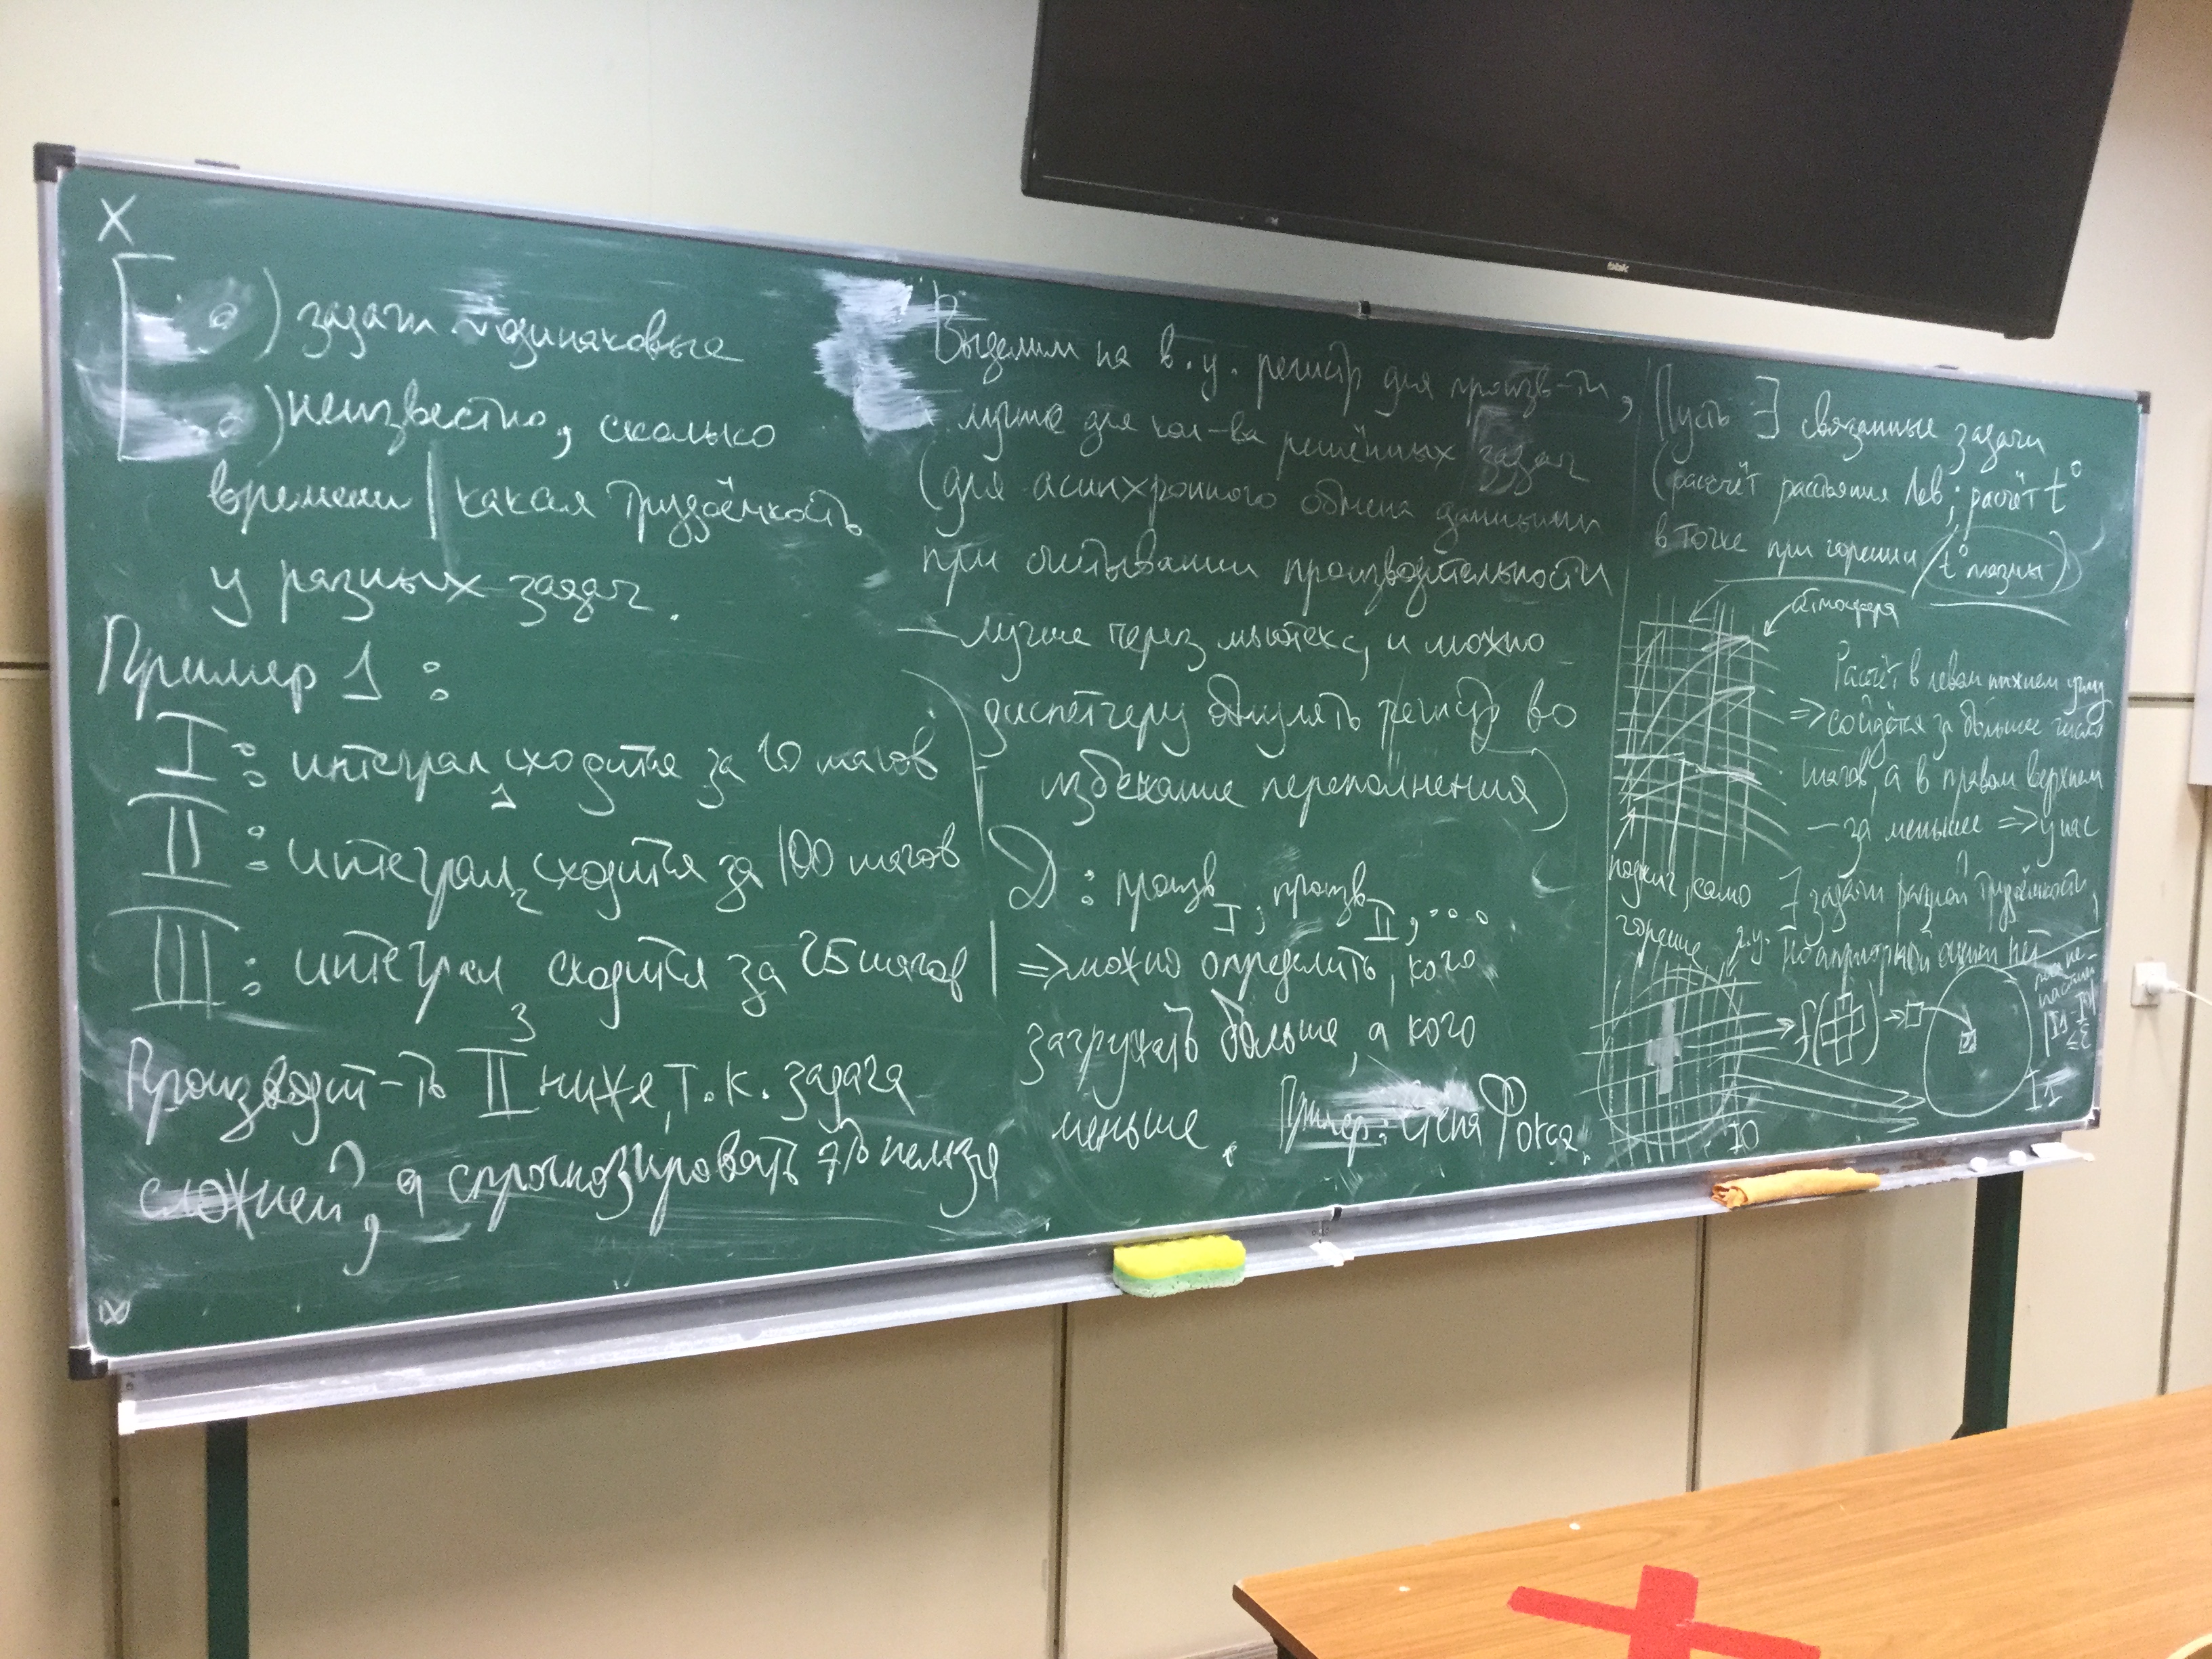 X
а) задачи одинаковые
) неизвестно, сколько
времени / какая трудоёмкость
у разных задач.
Пример 1:
I: интеграл₁ сходится за 10 шагов
II: интеграл₂ сходится за 100 шагов
III: интеграл₃ сходится за 25 шагов
Производит-ть II ниже, т.к. задача
сложней, а спрогнозировать это нельзя
Выделим на в.у. регистр для произв-ти,
лучше для кол-ва решённых задач
(для асинхронного обмена данными
при считывании производительности
— лучше через мьютекс, и можно
диспетчеру обнулять регистр во
избежание переполнения)
D: произв I, произв II, ...
⇒ можно определить, кого
загружать больше, а кого
меньше. Пример: стена Фокса.
Пусть ∃ связанные задачи
(расчёт расстояния Лев; расчёт t°
в точке при горении / t° плазмы)
атмосфера
Расчёт в левом нижнем углу
⇒ сойдётся за большее число
шагов, а в правом верхнем
— за меньшее ⇒ у нас
∃ задачи разной трудоёмкости,
но априорной оценки нет
поджиг, само
горение
г.у.
⇒ f( ) ⇒
I0
I1
|I1-I0|
≤ε